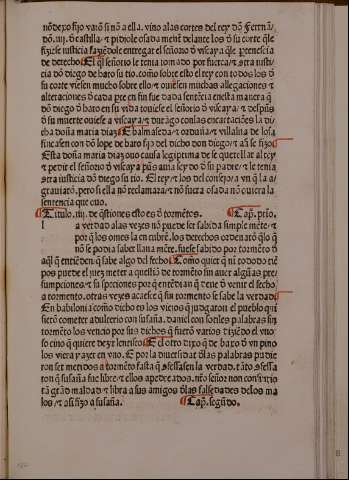 nō dexo fijo varō si nō a ella. vino alas cortes del rey dō Fernā/
dō .iiij. de castilla. & pidiole osada mēte delante los ð su corte q̄le
fiziese iusticia faziēdole entregar el señorio ð viscaya q̄ le ptenescia
de derecho El q̄l señorio le tenia tomado por fuerça & ētra iusti/
cia dō diego de haro su tio. como sobre esto el rey con todos los ð
su corte viesen mucho sobre ello & ouiesen muchas allegaciones &
alteraciones ð cada pte en fin fue dada sentēcia en esta manera q̄
dō diego ð haro en su vida touiese el señorio ð viscaya & despues
ð su muerte ouiese a viscaya & durāgo con las encartaciōes la di
cha doña maria diaz E balmaseda & orduña & villalua de losa
fincasen con dō lope de haro fijo del dicho don diego & asi se fizo
Esta doña maria diaz ouo causa legitima de se querellar al rey
& pedir el señorio ð viscaya pues auia seydo ð su padre & le tenia
ētra iusticia dō diego su tio. El rey & los del consejo a vn q̄ la a/
grauiarō. pero si ella nō reclamara & nō fuera osada nō ouiera la
sentencia que ouo.
Titulo .iiij. de q̄stiones esto es ð tormētos. Cap. prio.
la verdad alas vezes nō puede ser sabida simple mēte & 
por q̄ los omes la encubrē. los derechos ordenarō q̄lo q̄
nō se podia saber llana mēte. fuese sabido por tormēto ð
aq̄l q̄ entiēden q̄ sabe algo del fecho Como quier q̄ ni todo tiē
pos puede el juez meter a questiō de tormēto sin auer algūas pre/
sumpciones & sospeciones por q̄ entiēdan q̄ deue ð venir el fecho
a tormento. otras vezes acaesce q̄ sin tormento se sabe la verdad
En babilonia como dicho es los viejos q̄ judgaron el pueblo q̄ qui
sierō cometer adulterio con susaña. daniel con solas palabras sin
tormēto los vencio por sus dichos q̄ fuerō varios diziēdo el vno
so cino q̄ quiere dezir lenrisco E el otro dixo q̄ de baxo ð vn pino
los viera yazer en vno. E por la diuersidat ð las palabras pudie
ron ser metidos a tormēto fasta q̄ ɔfesasen la verdad. & ātō ɔfesa
ron q̄ susaña fue libre & ellos apedreados. nr̄o señor non consintio
tā grād maldad & libra a sus amigos ð las falsedades de los ma
los & asi fizo a susaña. Cap. segūdo.